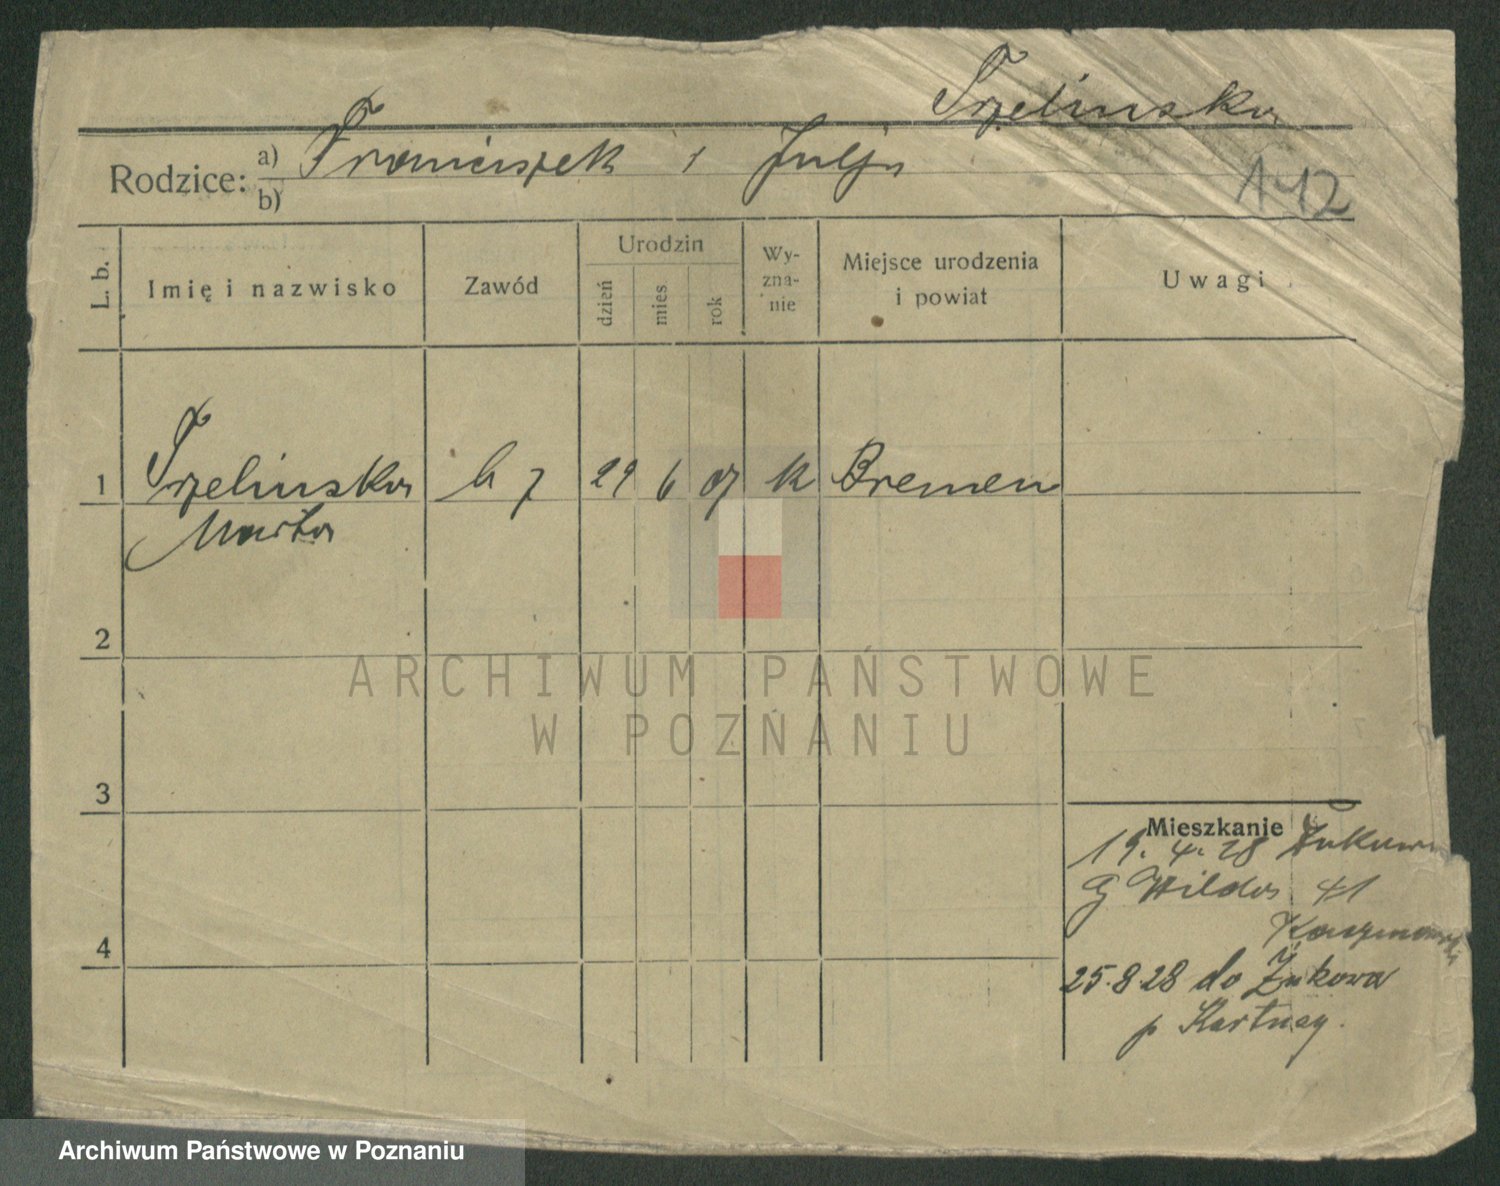 Trzelinska
Rodzice: a) Franciszek i Julja
b)
142
L. b.
Imię i nazwisko
Zawód
Urodzin
dzień
mies
rok
Wy-
zna-
nie
Miejsce urodzenia
i powiat
Uwagi
1 Trzelinska b z 29 6 07 k Bremen
Marta
2
3
4
Mieszkanie
19. 4. 28
G Wilda 41
25.8.28 do Żukowa
p Kartuzy.
ARCHIWUM PAŃSTWOWE
W POZNANIU
Archiwum Państwowe w Poznaniu